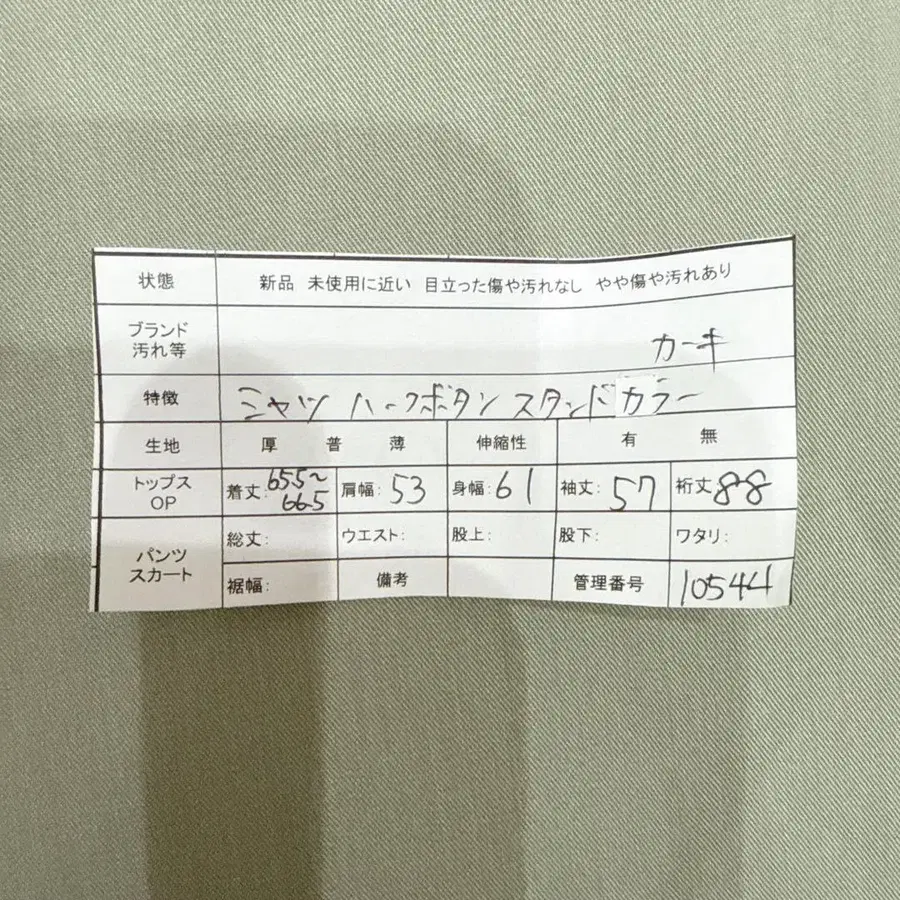 状態 新品 未使用に近い 目立った傷や汚れなし やや傷や汚れあり
ブランド
汚れ等 カーキ
特徴 シャツ ハーフボタン スタンドカラー
生地 厚 普 薄 伸縮性 有 無
トップス
OP 着丈:65.5~
66.5 肩幅:53 身幅:61 袖丈:57 裄丈88
パンツ
スカート 総丈: ウエスト: 股上: 股下: ワタリ:
裾幅: 備考 管理番号 10544